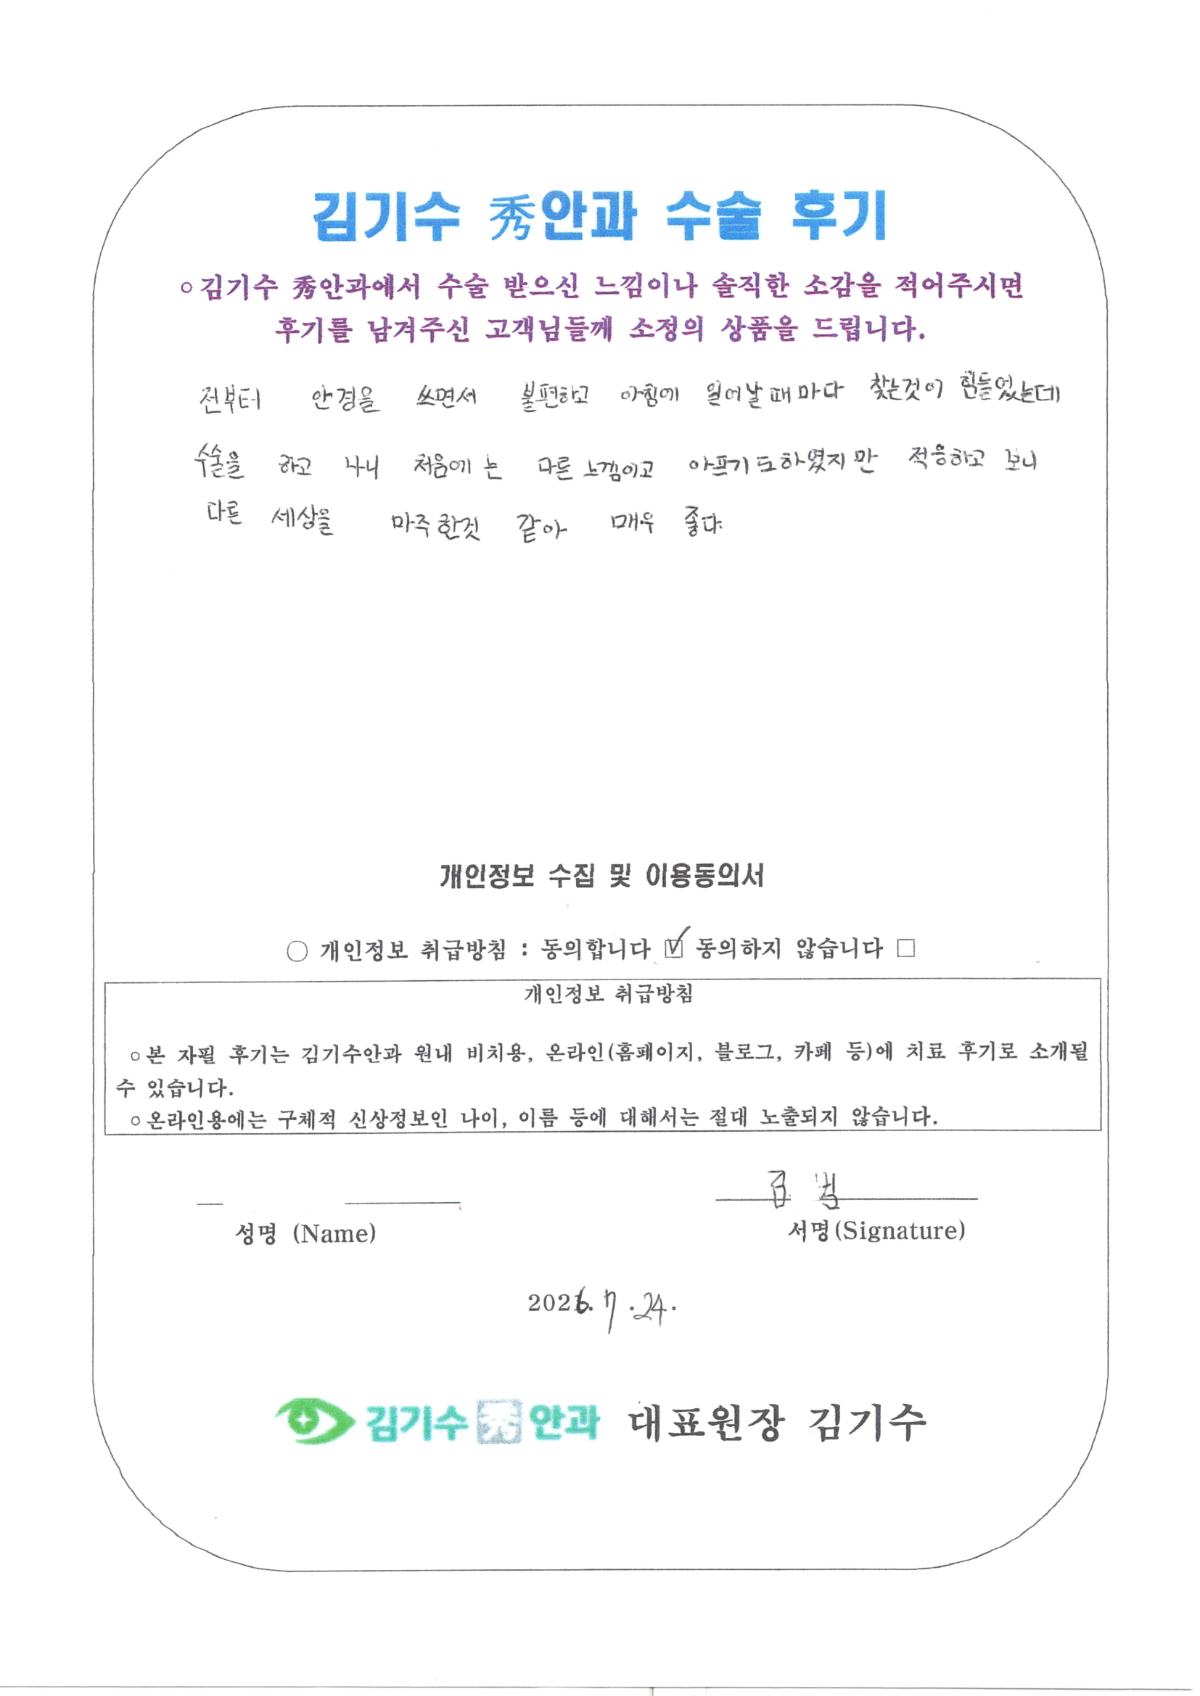 김기수 秀안과 수술 후기
○김기수 秀안과에서 수술 받으신 느낌이나 솔직한 소감을 적어주시면
후기를 남겨주신 고객님들께 소정의 상품을 드립니다.
전부터 안경을 쓰면서 불편하고 아침에 일어날때마다 찾는것이 힘들었는데
수술을 하고 나니 처음에는 다른 느낌이고 아프기도하였지만 적응하고 보니
다른 세상을 마주한것 같아 매우 좋다.
개인정보 수집 및 이용동의서
○ 개인정보 취급방침 : 동의합니다 ☑ 동의하지 않습니다 □
개인정보 취급방침
○본 자필 후기는 김기수안과 원내 비치용, 온라인(홈페이지, 블로그, 카페 등)에 치료 후기로 소개될
수 있습니다.
○온라인용에는 구체적 신상정보인 나이, 이름 등에 대해서는 절대 노출되지 않습니다.
성명 (Name) 서명(Signature)
2026. 7 .24.
김기수 秀 안과 대표원장 김기수